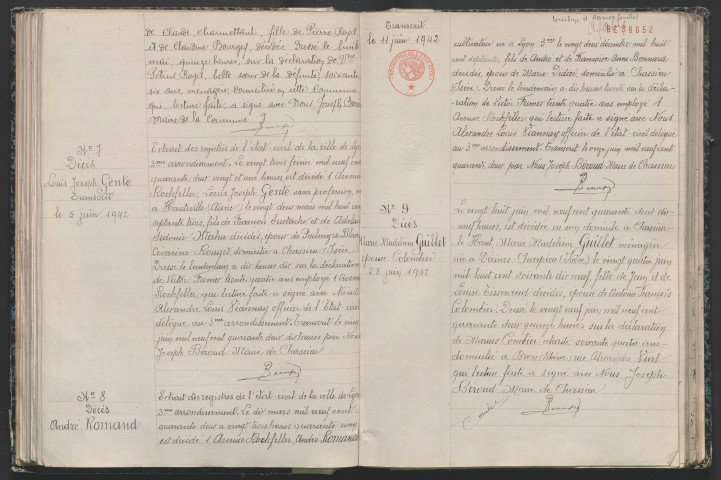 de Claude Charmettant, fille de Pierre Rayet
et de Claudine Bourges, décédés. Dressé le huit
mai, quinze heures, sur la déclaration de Vve
Rayet, belle sœur de la défunte, soixante
six ans, ménagère, domiciliée en cette commune
qui, lecture faite, a signé avec Nous Joseph Béroud
Maire de la Commune
N° 7
Décès
Louis Joseph Genté
Transcrit
le 5 juin 1942
Extrait des registres de l'état-civil de la ville de Lyon
3me arrondissement. Le vingt trois février mil neuf cent
quarante deux vingt et une heures, est décédé 1 Avenue
Rockfeller, Louis Joseph Genté sans profession, né
à Hauteville (Aisne) le vingt deux mars mil huit cent
septante trois, fils de François Eustache et de Adélaïde
Sidonie décédés, époux de Palmyre
Césarine Rouget, domicilié à Chassieu Isère
Dressé le lendemain à dix heures sur la déclaration
de Victor Fromer trente quatre ans employé 1 Avenue
Rockfeller, qui lecture faite a signé avec Nous
Alexandre Louis officier de l'Etat-civil
délégué au 3me arrondissement. Transcrit le cinq
juin mil neuf cent quarante deux dix heures par Nous
Joseph Béroud Maire de Chassieu
N° 8
Décès
André Romand
Extrait des registres de l'état-civil de la ville de Lyon
3me arrondissement. Le dix mars mil neuf cent
quarante deux à vingt trois heures quarante cinq
est décédé 1 Avenue Rockfeller, André Romand
Transcrit
le 11 juin 1942
cultivateur né à Lyon 3me le vingt deux décembre mil huit
cent septante, fils de André et de Françoise Anna Bonnard
décédés, époux de Marie Didier, domicilié à Chassieu
(Isère). Dressé le lendemain à dix heures trente sur la décla-
ration de Victor Fromer trente quatre ans employé 1
Avenue Rockfeller qui lecture faite a signé avec Nous
Alexandre Louis officier de l'état-civil délégué
au 3me arrondissement. Transcrit le onze juin mil neuf cent
quarante deux par Nous Joseph Béroud Maire de Chassieu
N° 9
Décès
Marie Madeleine Guillet
épouse Colombier
28 juin 1942
Le vingt huit juin mil neuf cent quarante deux dix
neuf heures, est décédée en son domicile à Chassieu
le Haut Marie Madeleine Guillet ménagère
née à (Isère) le vingt quatre juin
mil huit cent soixante dix neuf, fille de Jean et de
Louise décédés, épouse de Antoine François
Colombier. Dressé le vingt neuf juin mil neuf cent
quarante deux quinze heures sur la déclaration
de Marius Combier retraité soixante quatre ans
domicilié à Bron Rhône rue Alexandre
qui lecture faite a signé avec Nous Joseph
Béroud Maire de Chassieu